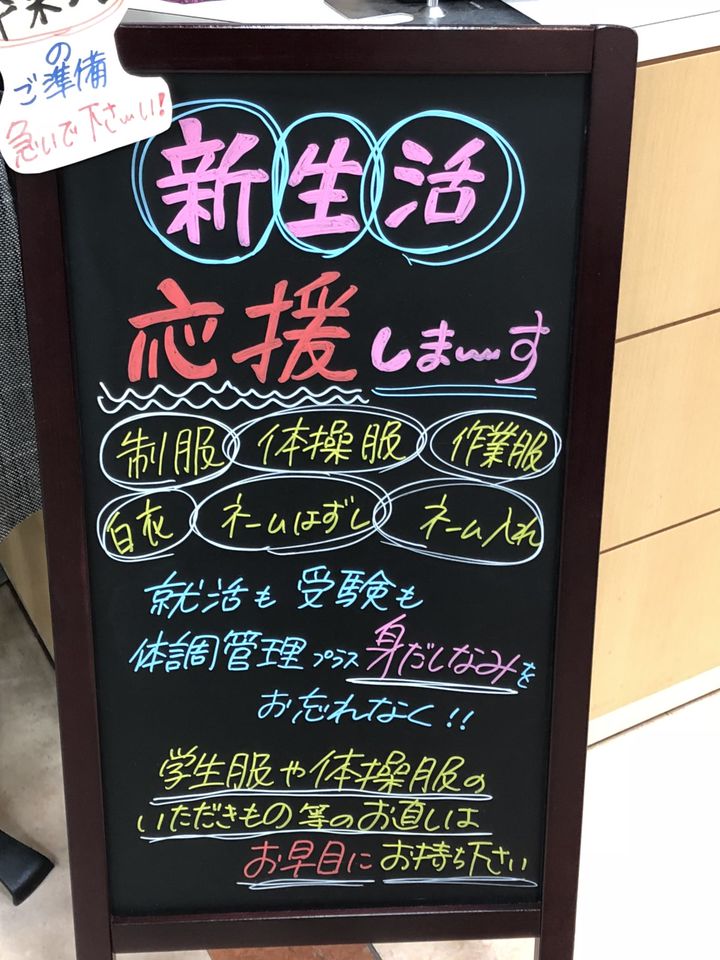 の
ご準備
急いで下さーい!
新生活
応援しまーす
制服 体操服 作業服
白衣 ネームはずし ネーム入れ
就活も 受験も
体調管理プラス身だしなみを
お忘れなく!!
学生服や体操服の
いただきもの等のお直しは
お早目にお持ち下さい